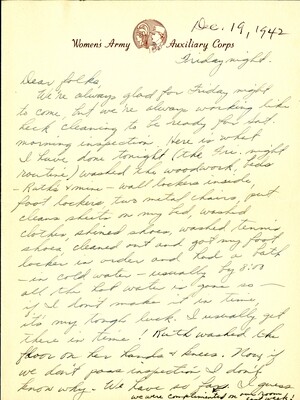 Dec. 19, 1942
Women's Army Auxiliary Corps
Friday night.
Dear folks,
We're always glad for Friday night
to come, but we're always working like
heck cleaning to be ready for Sat.
morning inspection. Here is what
I have done tonight (the Fri. night
routine) washed the woodwork, beds
- Ruth's & mine - wall lockers inside,
foot lockers, two metal chairs, put
clean sheets on my bed, washed
clothes, shined shoes, washed tennis
shoes, cleaned out and got my foot
locker in order and had a bath
- in cold water - usually by 8:00
all the hot water is gone so -
if I don't make it in time,
it's my tough luck. I usually get
there in time! Ruth washed the
floor on her hands & knees. Now if
we don't pass inspection I don't
know why. We have so far I guess
we were complimented on our room
last week!